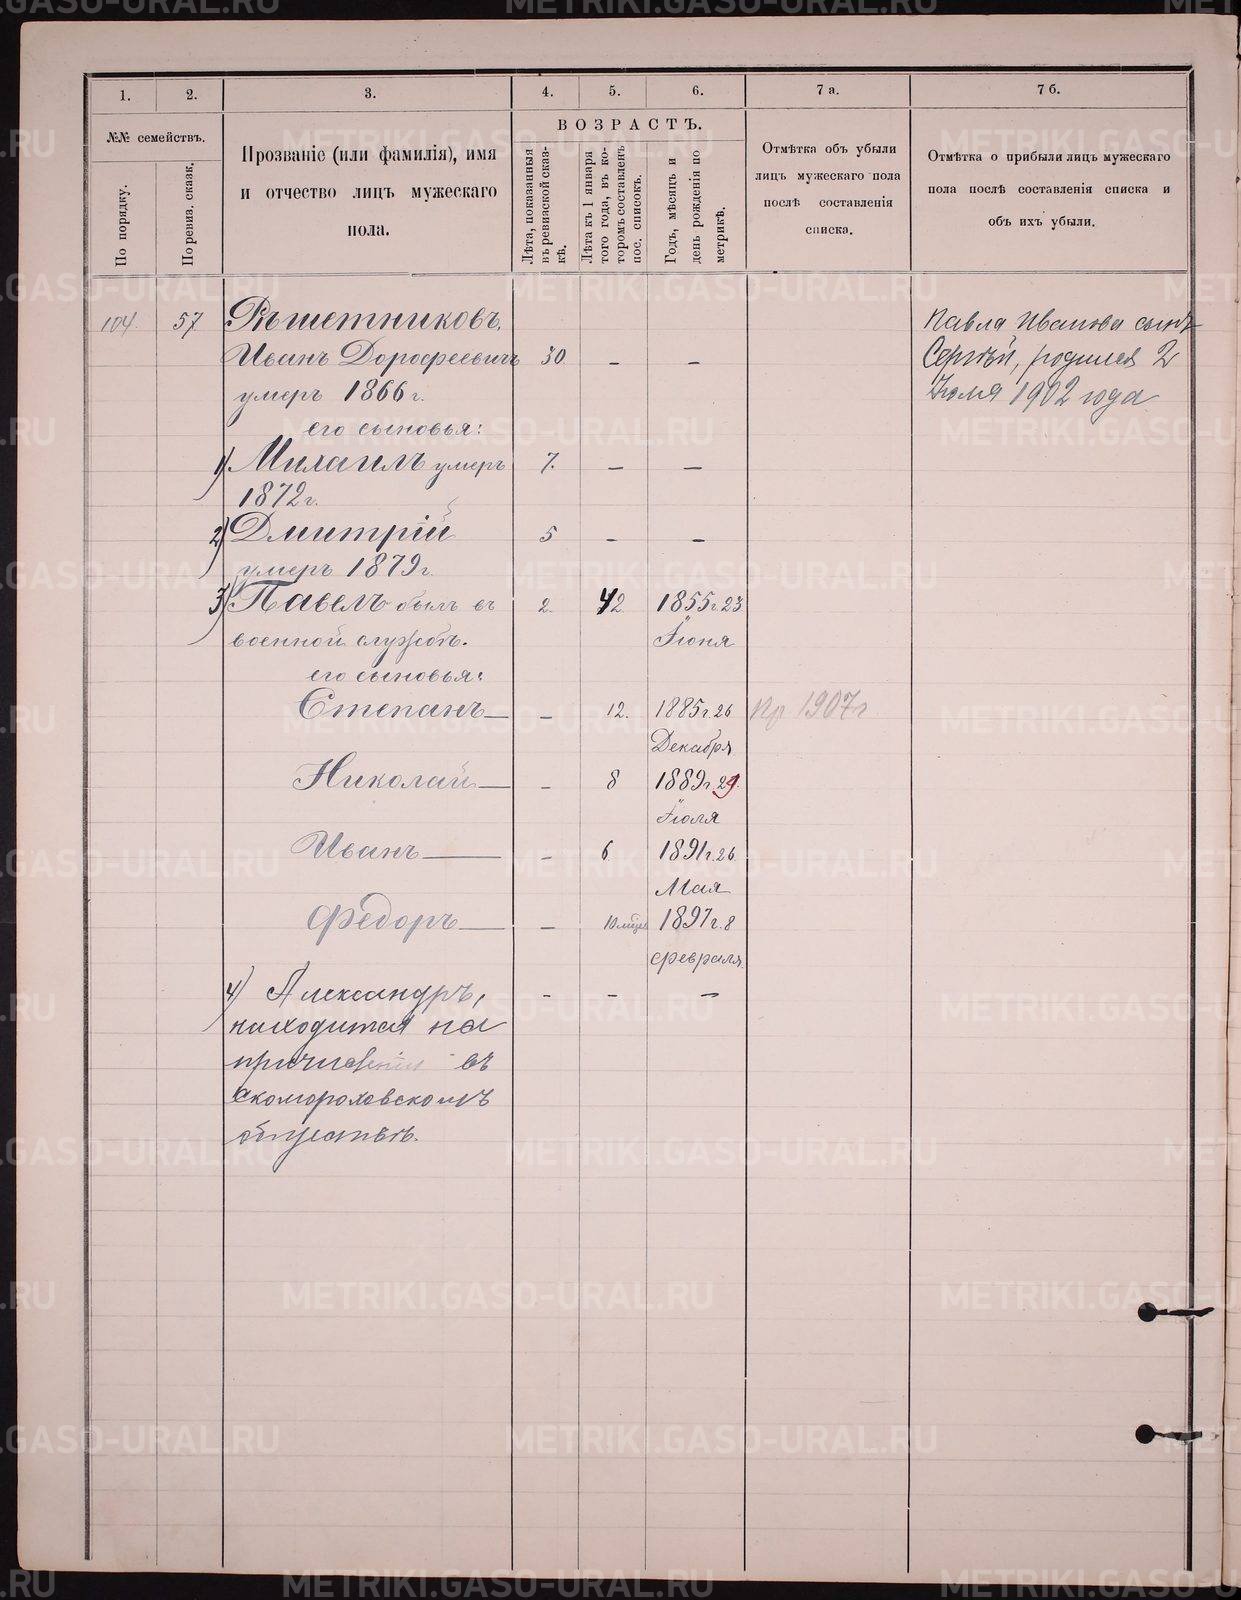 1.
2.
3.
4.
5.
6.
7 а.
7 б.
№№ семействъ.
По порядку.
По ревиз. сказк.
Прозваніе (или фамилія), имя
и отчество лицъ мужескаго
пола.
ВОЗРАСТЪ.
Лѣта, показанныя
въ ревизской сказ-
кѣ.
Лѣта къ 1 января
того года, въ ко-
торомъ составленъ
пос. списокъ.
Годъ, мѣсяцъ и
день рожденія по
метрикѣ.
Отмѣтка объ убыли
лицъ мужескаго пола
послѣ составленія
списка.
Отмѣтка о прибыли лицъ мужескаго
пола послѣ составленія списка и
объ ихъ убыли.
104. 57 Рѣшетниковъ.
Иванъ Дорофеевичъ 30 – –
умеръ 1866 г.
его сыновья:
1) Михаилъ умеръ 7. – –
1872 г.
2) Дмитрій 5 – –
умеръ 1879 г.
3) Павелъ былъ въ 2. 42 1855 г. 23
военной службѣ. Іюня
его сыновья:
Степанъ – – 12. 1885 г. 26 Пр 1907 г
Декабря
Николай – – 8 1889 г. 29.
Іюля
Иванъ – – 6 1891 г. 26
Мая
Федоръ – – 10 мѣся 1897 г. 8
февраля
4) Александръ, – – –
находится на
причисленіи въ
Скомороховскомъ
обществѣ.
Павла Иванова сынъ
Сергѣй, родился 2
Іюля 1902 года
METRIKI.GASO-URAL.RU